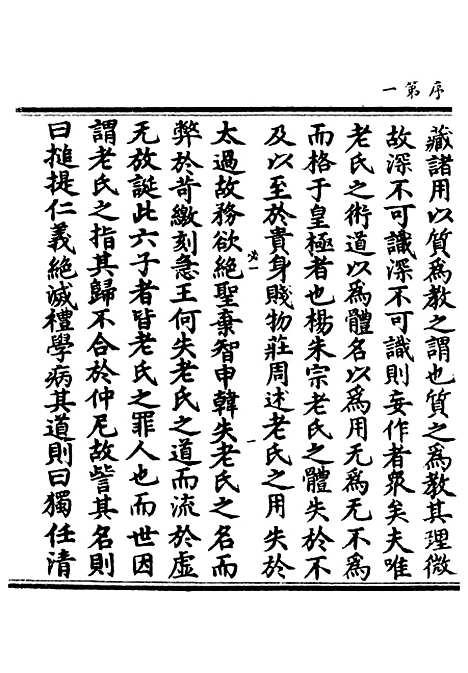 序第一
藏諸用以質爲教之謂也質之爲教其理微
故深不可識深不可識則妄作者衆矣夫唯
老氏之術道以爲體名以爲用无爲无不爲
而格于皇極者也楊朱宗老氏之體失於不
及以至於貴身賤物莊周述老氏之用失於
太過故務欲絶聖棄智申韓失老氏之名而
弊於苛繳刻急王何失老氏之道而流於虛
无放誕此六子者皆老氏之罪人也而世因
謂老氏之指其歸不合於仲尼故訾其名則
曰搥提仁義絶滅禮學病其道則曰獨任清